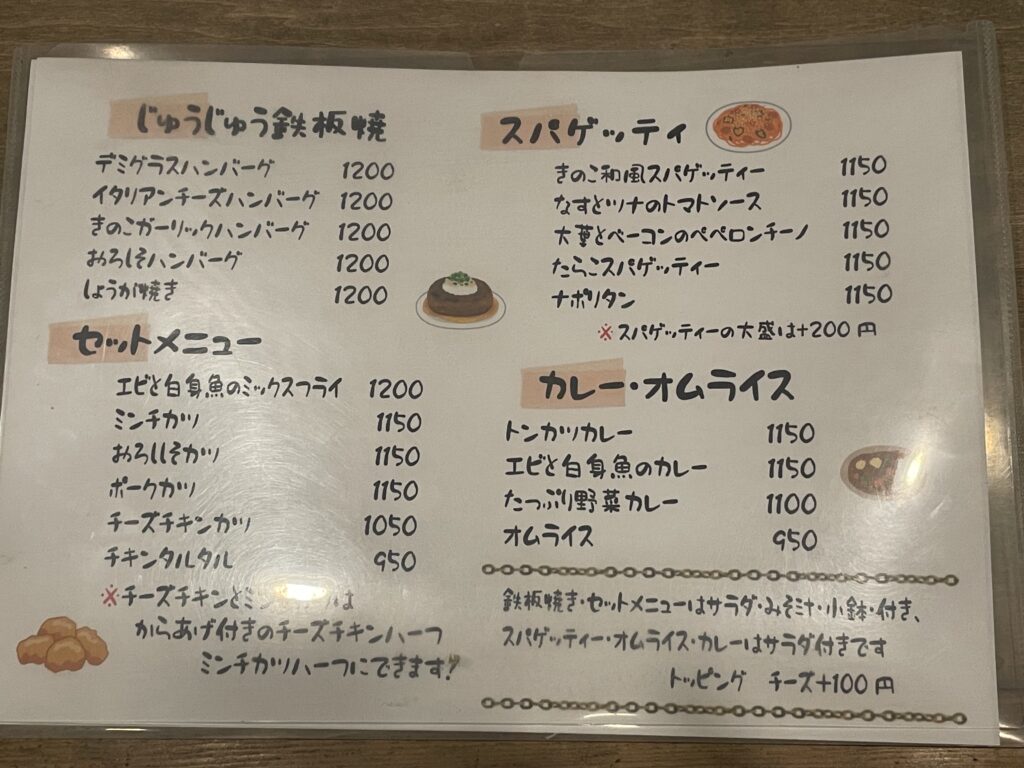 じゅうじゅう鉄板焼
デミグラスハンバーグ 1200
イタリアンチーズハンバーグ 1200
きのこガーリックハンバーグ 1200
おろしそハンバーグ 1200
しょうが焼き 1200
セットメニュー
エビと白身魚のミックスフライ 1200
ミンチカツ 1150
おろししそカツ 1150
ポークカツ 1150
チーズチキンカツ 1050
チキンタルタル 950
※チーズチキンとミンチ は
からあげ付きのチーズチキンハーフ
ミンチカツハーフにできます!
スパゲッティ
きのこ和風スパゲッティー 1150
なすとツナのトマトソース 1150
大葉とベーコンのペペロンチーノ 1150
たらこスパゲッティー 1150
ナポリタン 1150
※スパゲッティーの大盛は+200円
カレー・オムライス
トンカツカレー 1150
エビと白身魚のカレー 1150
たっぷり野菜カレー 1100
オムライス 950
鉄板焼き・セットメニューはサラダ・みそ汁・小鉢・付き、
スパゲッティー・オムライス・カレーはサラダ付きです
トッピング チーズ+100円